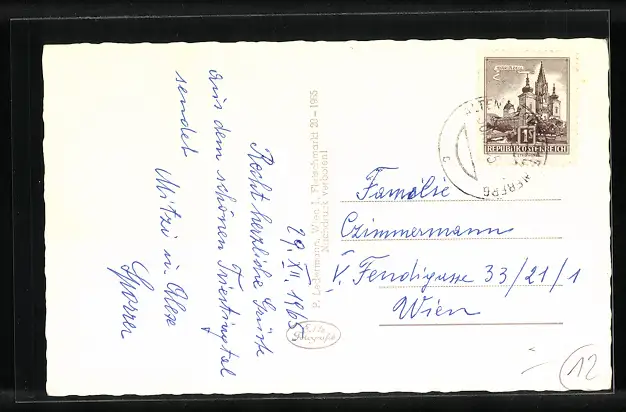 29. XII. 1965
Recht herzliche Grüße
aus dem schönen Triestingtal
sendet
Mitzi u.
P. Ledermann, Wien I, Fleischmarkt 20-1935
Nachdruck verboten!
Echte
REPUBLIK ÖSTERREICH
Familie
Czimmermann
V. Fendigasse 33/21/1
Wien
12